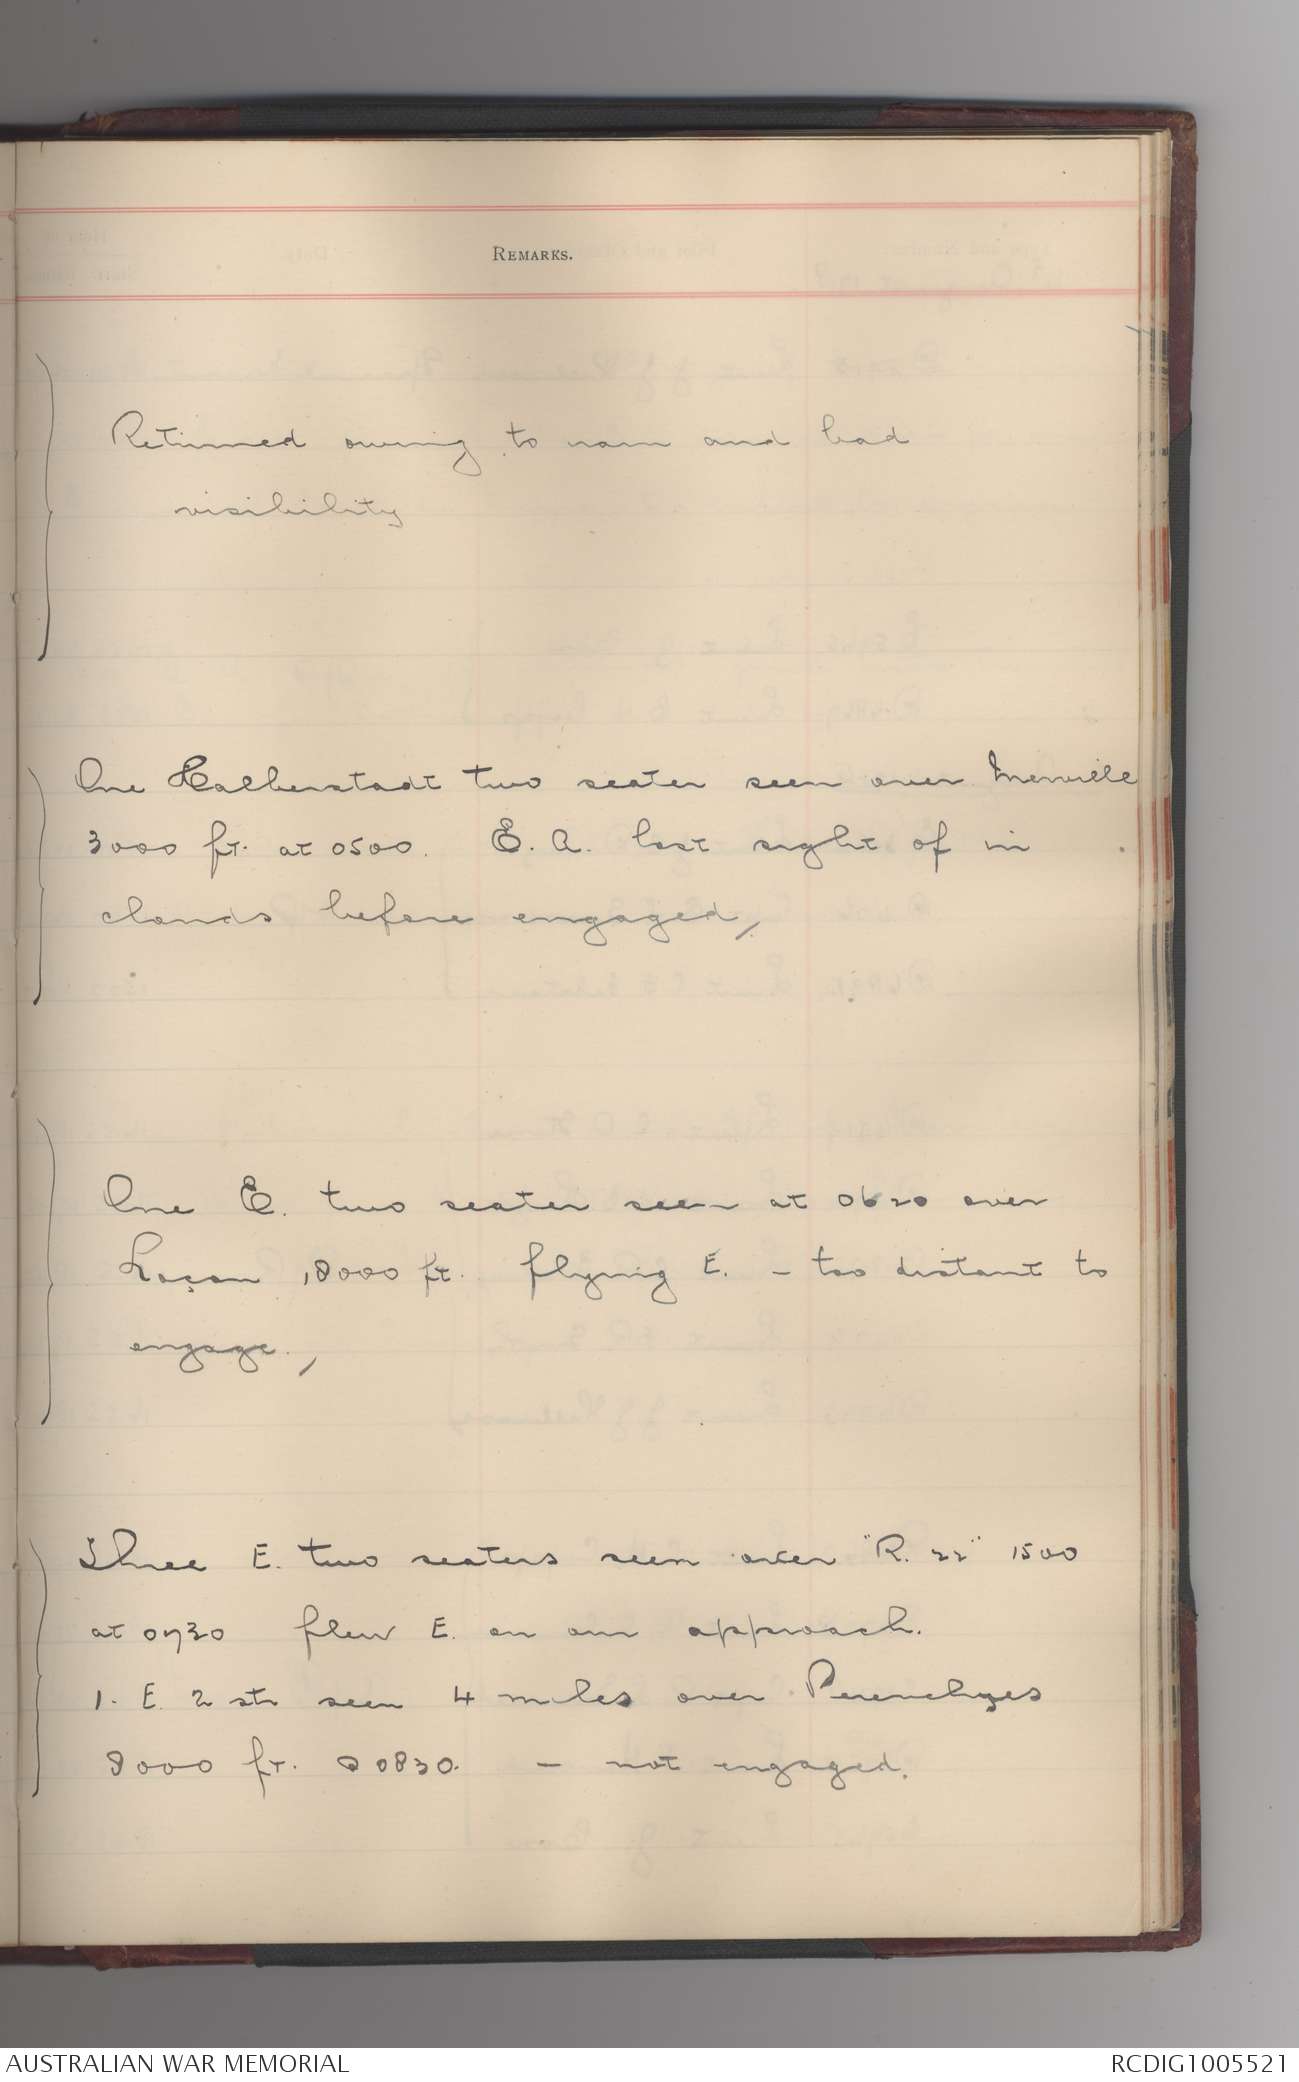 REMARKS.
Returned owing to rain and bad
visibility
One Halberstadt two seater seen over Merville
3000 ft. at 0500. E. A. lost sight of in
clouds before engaged,
One E. two seater seen at 0620 over
Laçon 18000 ft. flying E. - too distant to
engage.,
Three E. two seaters seen over "R. 22" 1500
at 0730 flew E. on our approach.
1. E. 2 str seen 4 miles over Perenchyes
8000 ft. @ 0830. - not engaged.
AUSTRALIAN WAR MEMORIAL
RCDIG1005521